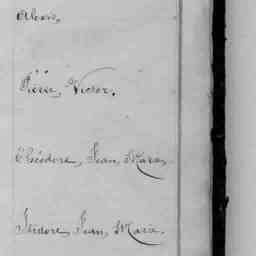 Alexis,
Pierre, Victor.
Théodore, Jean, Marie,
Isidore, Jean, Marie,